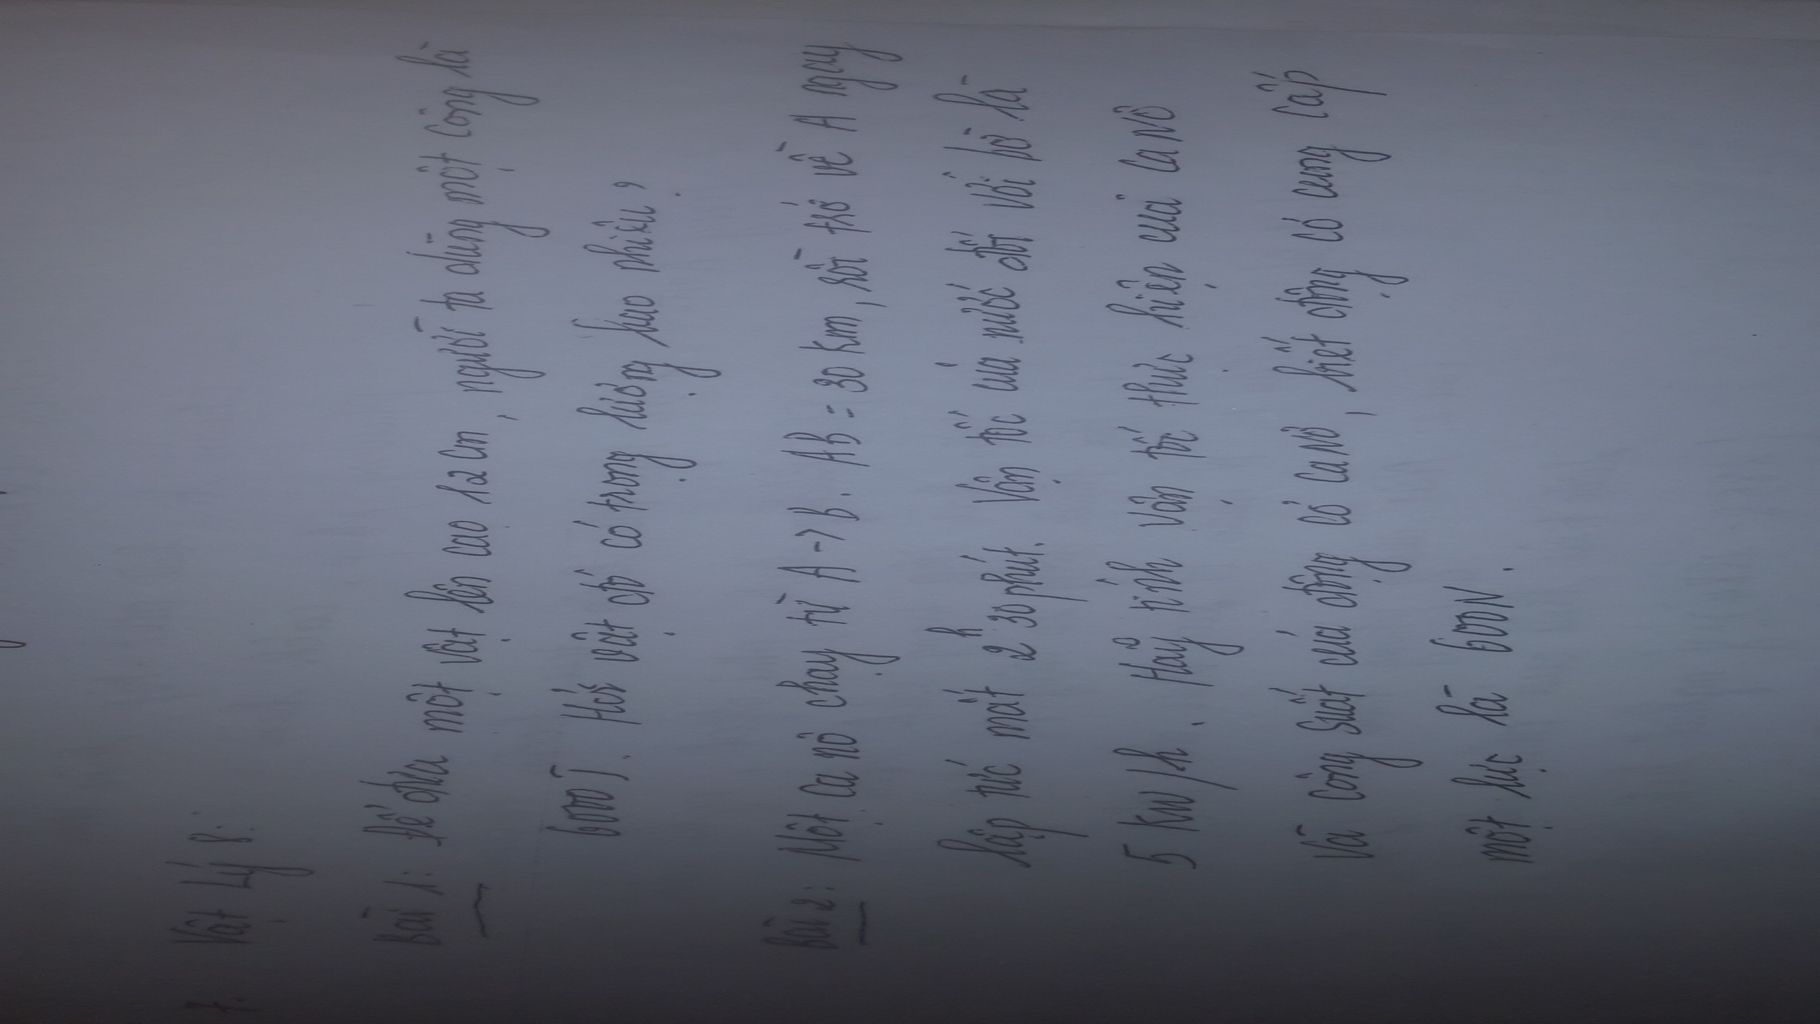 7. Vật Lý 8:
Bài 1: Để đưa một vật lên cao 12cm, người ta dùng một công là
600J. Hỏi vật đó có trọng lượng bao nhiêu?
Bài 2: Một ca nô chạy từ A -> B. AB = 30 km, rồi trở về A ngay
lập tức mất 2h 30 phút. Vận tốc của nước đối với bờ là
5 km/h. Hãy tính vận tốc thực hiện của ca nô
và công suất của động cơ ca nô, biết động cơ cung cấp
một lực là 600N.